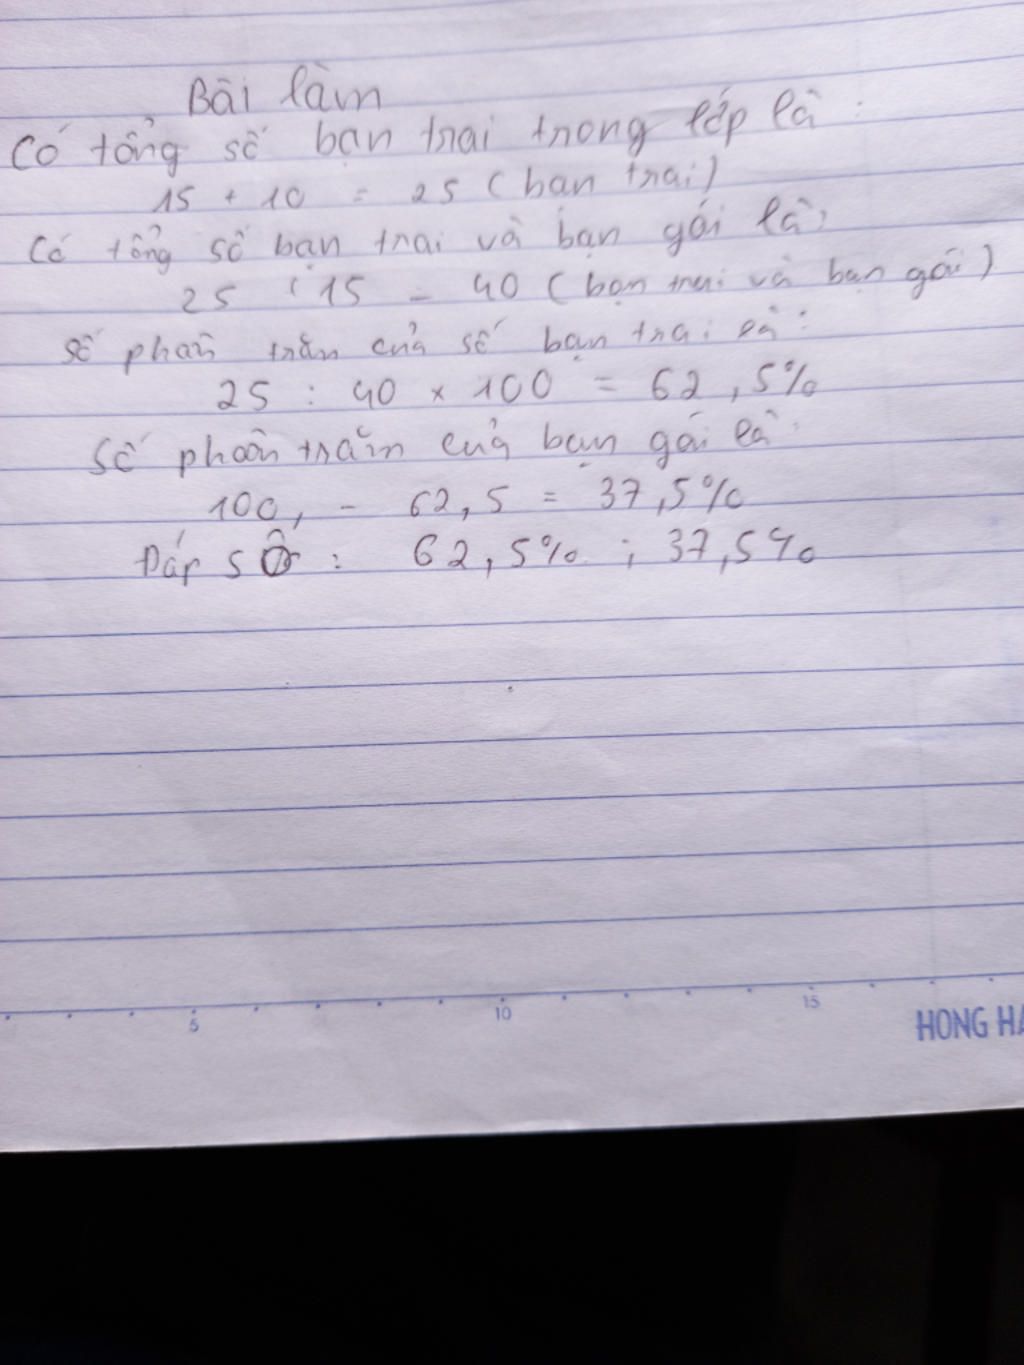 Bài làm
Có tổng số bạn trai trong lớp là :
15 + 10 = 25 (bạn trai)
Có tổng số bạn trai và bạn gái là :
25 + 15 = 40 (bạn trai và bạn gái)
Số phần trăm của số bạn trai là :
25 : 40 × 100 = 62,5%
Số phần trăm của bạn gái là :
100, - 62,5 = 37,5%
Đáp số : 62,5% ; 37,5%
5 10 15
HONG HA